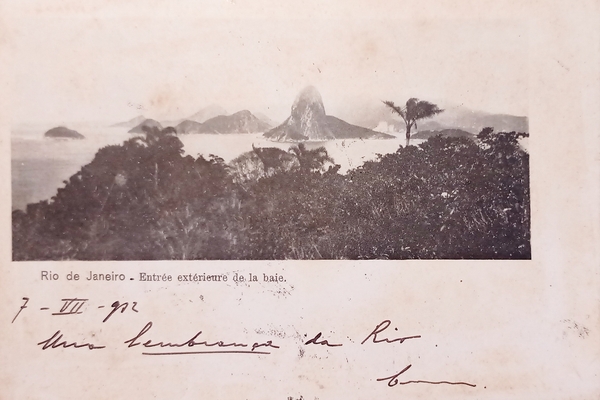 Rio de Janeiro - Entrée extérieure de la baie.
7 - VII - 912
Uma lembrança do Rio.